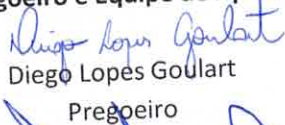 Diego Lopes Goulart
Diego Lopes Goulart
Pregoeiro